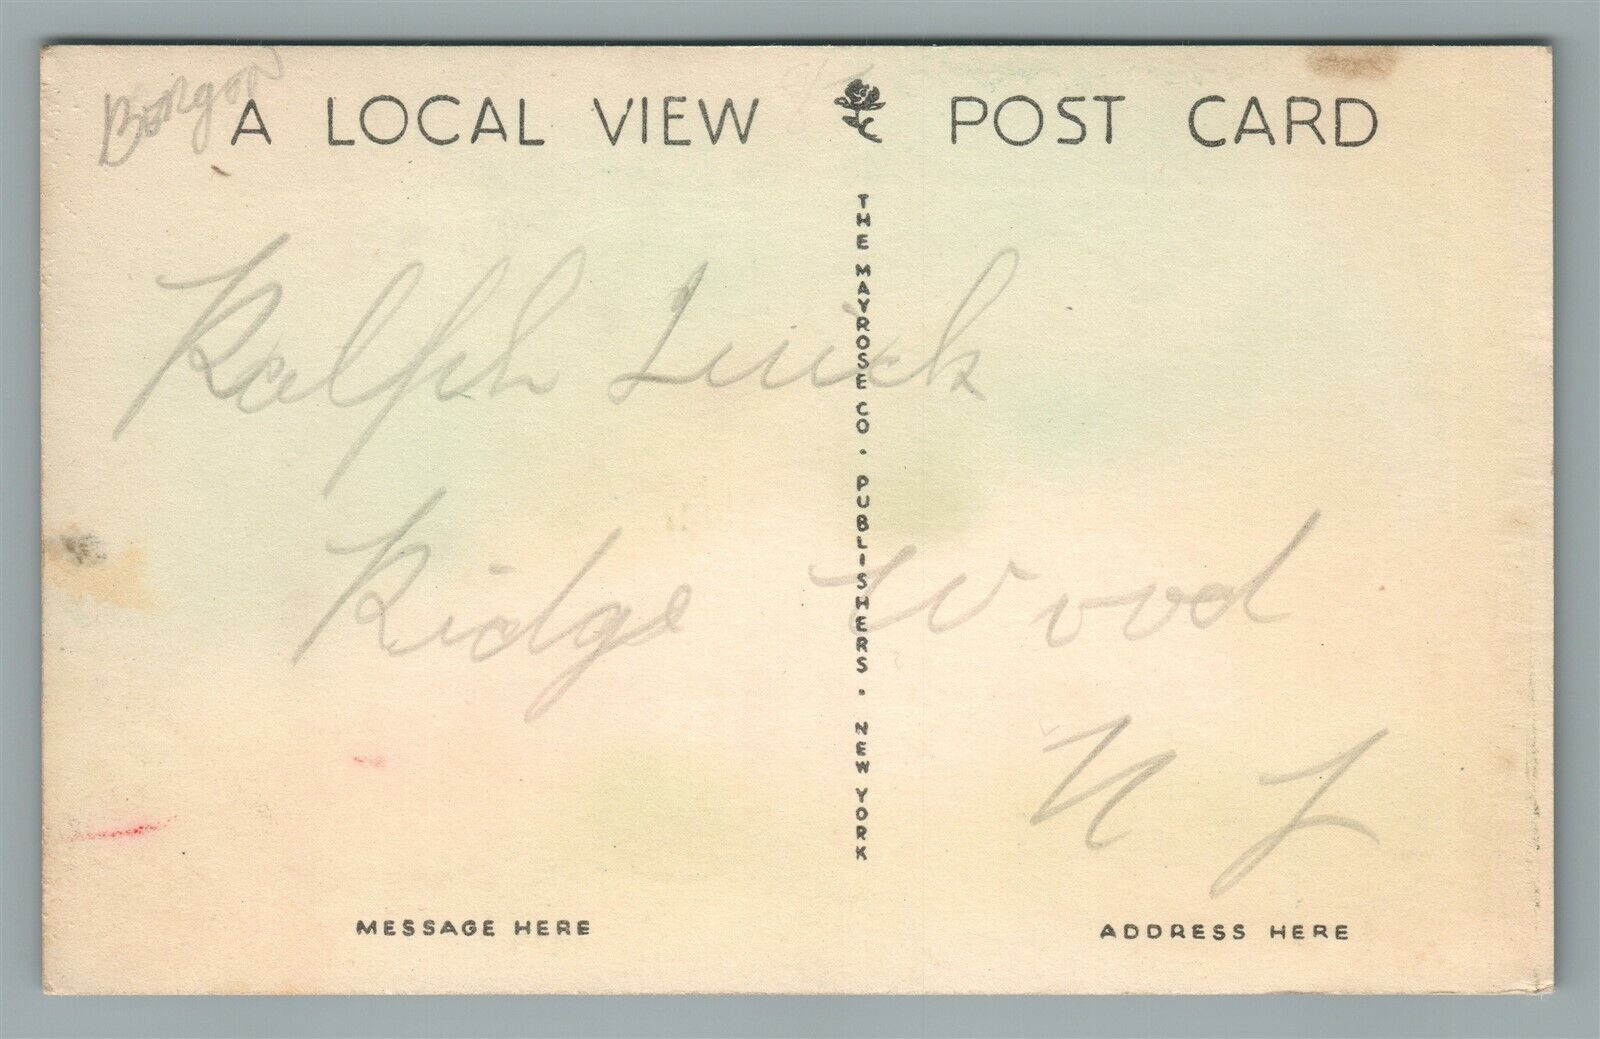 A LOCAL VIEW POST CARD
Ralph
Ridge Wood
N J
THE MAYROSE CO. PUBLISHERS. NEW YORK
MESSAGE HERE
ADDRESS HERE